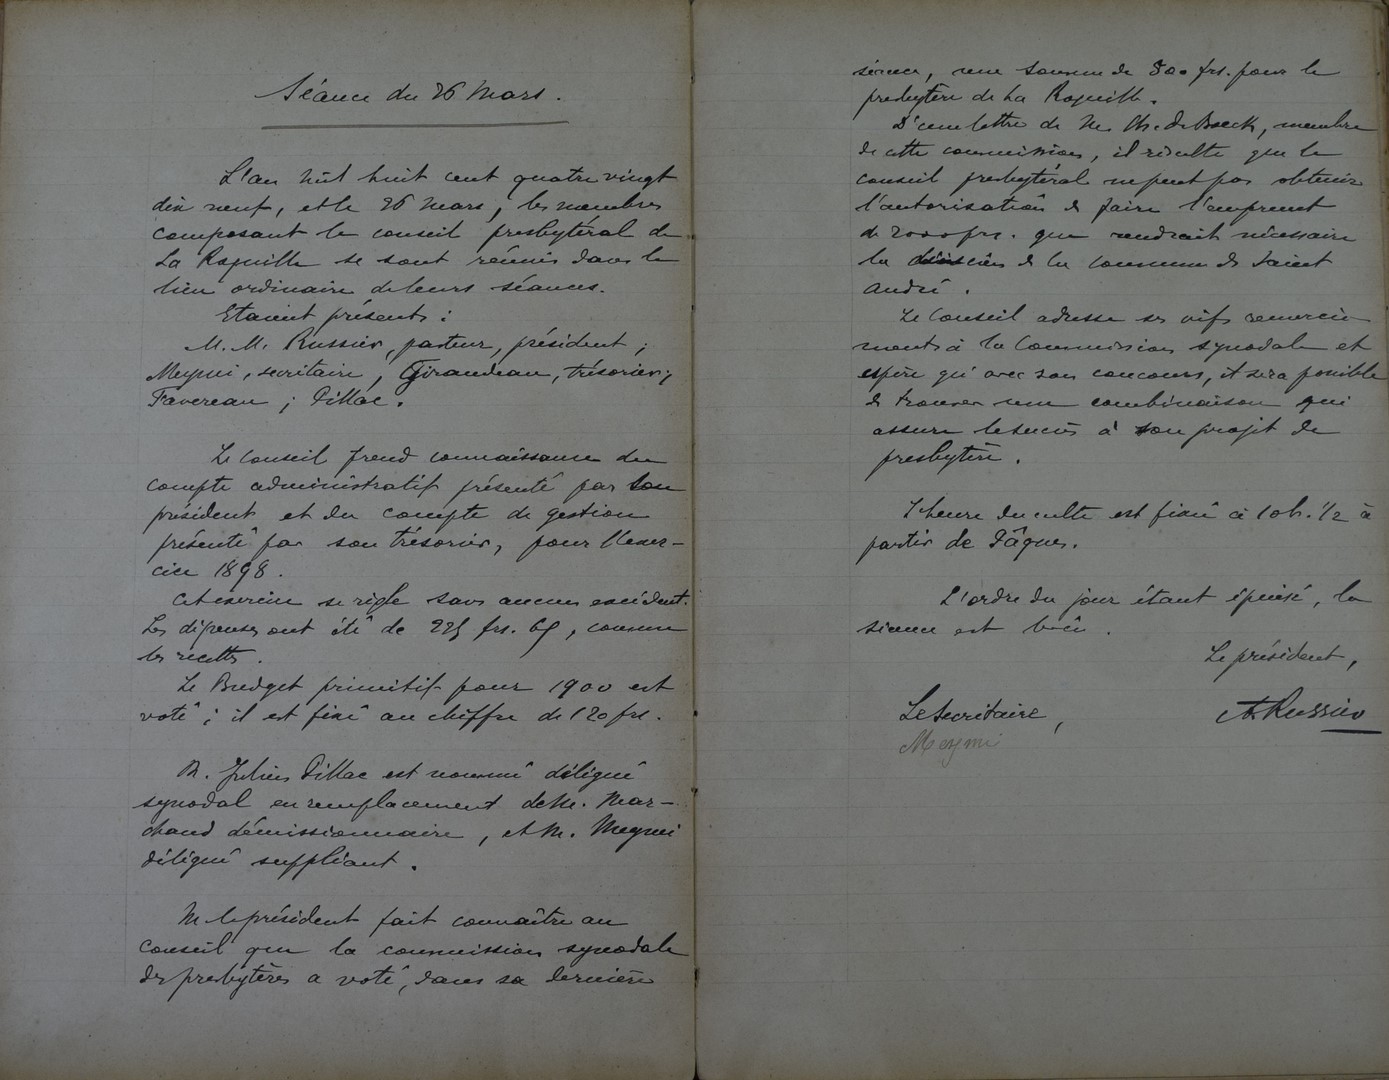 Séance du 26 Mars.
L'an mil huit cent quatre vingt
dix neuf, et le 26 Mars, les membres
composant le conseil presbytéral de
La Roquille se sont réunis dans le
lieu ordinaire de leurs séances.
Etaient présents :
M.M. Russier, pasteur, président ;
Meymi, secrétaire, Giraudeau, trésorier ;
Favereau ; Pillac.
Le Conseil prend connaissance du
compte administratif présenté par son
président et du compte de gestion
présenté par son trésorier, pour l'exer-
cice 1898.
Cet exercice se règle sans aucun excédent.
Les dépenses ont été de 225 frs. 65, comme
les recettes.
Le Budget primitif pour 1900 est
voté ; il est fixé au chiffre de 120 frs.
M. Julien Pillac est nommé délégué
synodal en remplacement de M. Mar-
chand démissionnaire, et M. Meymi
délégué suppléant.
M le président fait connaître au
Conseil que la commission synodale
des presbytères a voté, dans sa dernière
séance, une somme de 800 frs. pour le
presbytère de La Roquille.
D'une lettre de M. Ch. de Boeck, membre
de cette commission, il résulte que le
conseil presbytéral ne peut pas obtenir
l'autorisation de faire l'emprunt
de 2000 frs. que rendrait nécessaire
la de la commune de Saint
André.
Le Conseil adresse ses vifs remercie
ments à la Commission synodale et
espère qu'avec son concours, il sera possible
de trouver une combinaison qui
assure le succès à son projet de
presbytère.
L'heure du culte est fixée à 10 h. 1/2 à
partir de Pâques.
L'ordre du jour étant épuisé, la
séance est levée.
Le président,
Le Secrétaire,
A. Russier
Meymi